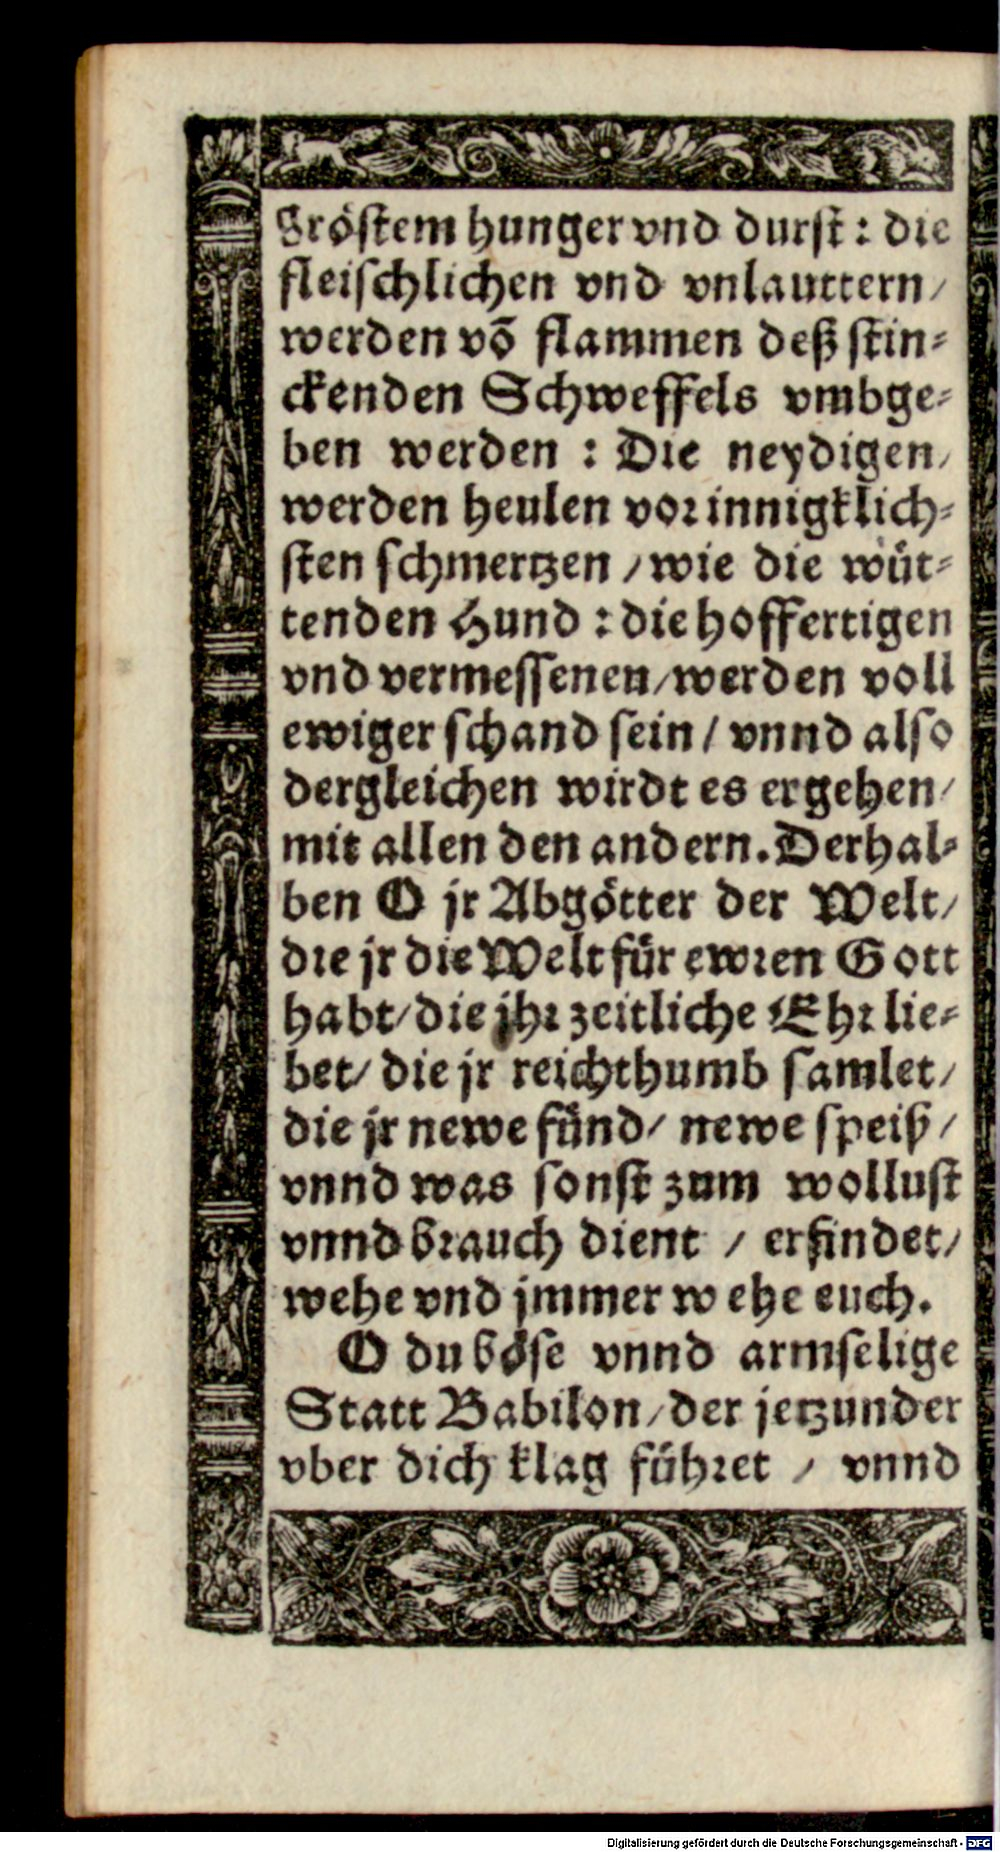 gröstem hunger vnd durst: die
fleischlichen vnd vnlauttern/
werden võ flammen deß stin-
ckenden Schweffels vmbge-
ben werden : Die neydigen/
werden heulen vor innigklich-
sten schmertzen / wie die wüt-
tenden Hund : die hoffertigen
vnd vermessenen/werden voll
ewiger schand sein / vnnd also
dergleichen wirdt es ergehen/
mit allen den andern. Derhal-
ben O jr Abgötter der Welt/
die jr die Welt für ewren Gott
habt/die jhr zeitliche Ehr lie-
bet/ die jr reichthumb samlet/
die jr newe fünd/ newe speiß/
vnnd was sonst zum wollust
vnnd brauch dient / erfindet/
wehe vnd jmmer wehe euch.
O du böse vnnd armselige
Statt Babilon/der jetzunder
vber dich klag führet / vnnd
Digitalisierung gefördert durch die Deutsche Forschungsgemeinschaft - DFG